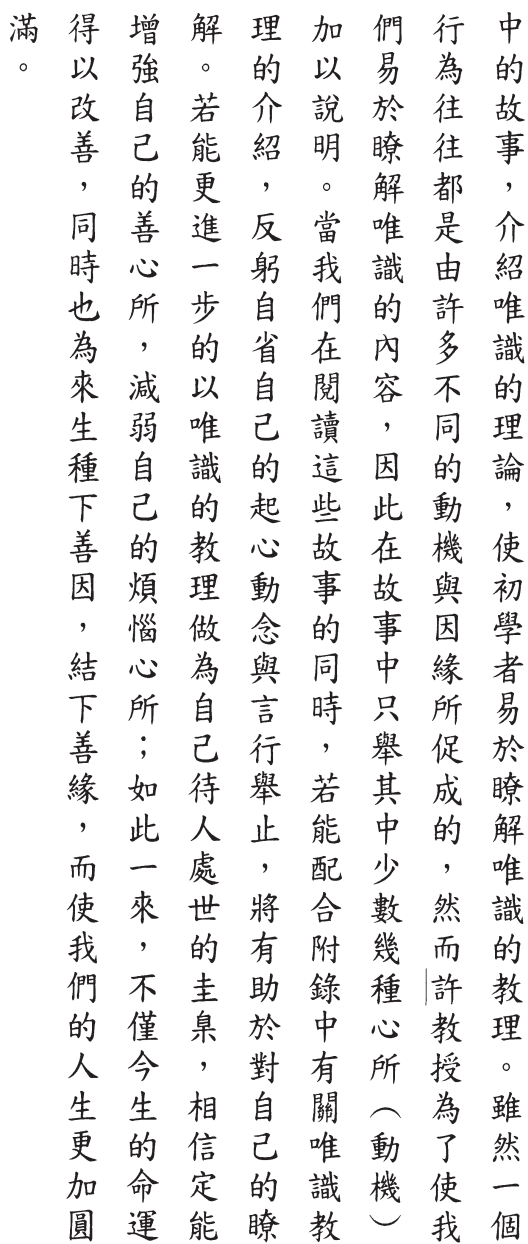 中的故事，介紹唯識的理論，使初學者易於瞭解唯識的教理。雖然一個
行為往往都是由許多不同的動機與因緣所促成的，然而許教授為了使我
們易於瞭解唯識的內容，因此在故事中只舉其中少數幾種心所（動機）
加以說明。當我們在閱讀這些故事的同時，若能配合附錄中有關唯識教
理的介紹，反躬自省自己的起心動念與言行舉止，將有助於對自己的瞭
解。若能更進一步的以唯識的教理做為自己待人處世的圭臬，相信定能
增強自己的善心所，減弱自己的煩惱心所；如此一來，不僅今生的命運
得以改善，同時也為來生種下善因，結下善緣，而使我們的人生更加圓
滿。